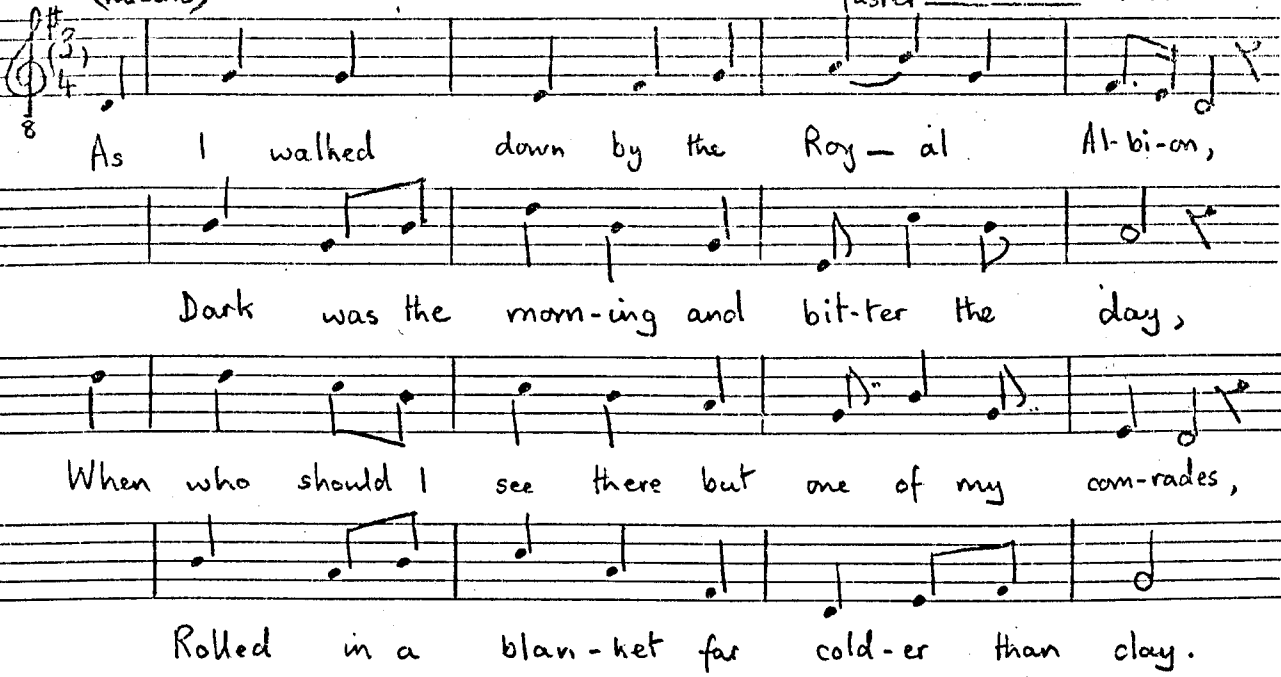 faster
3
4
8
As I walked down by the Roy - al Al-bi-on,
Dark was the morn-ing and bit-ter the day,
When who should I see there but one of my com-rades,
Rolled in a blan-ket far cold-er than clay.